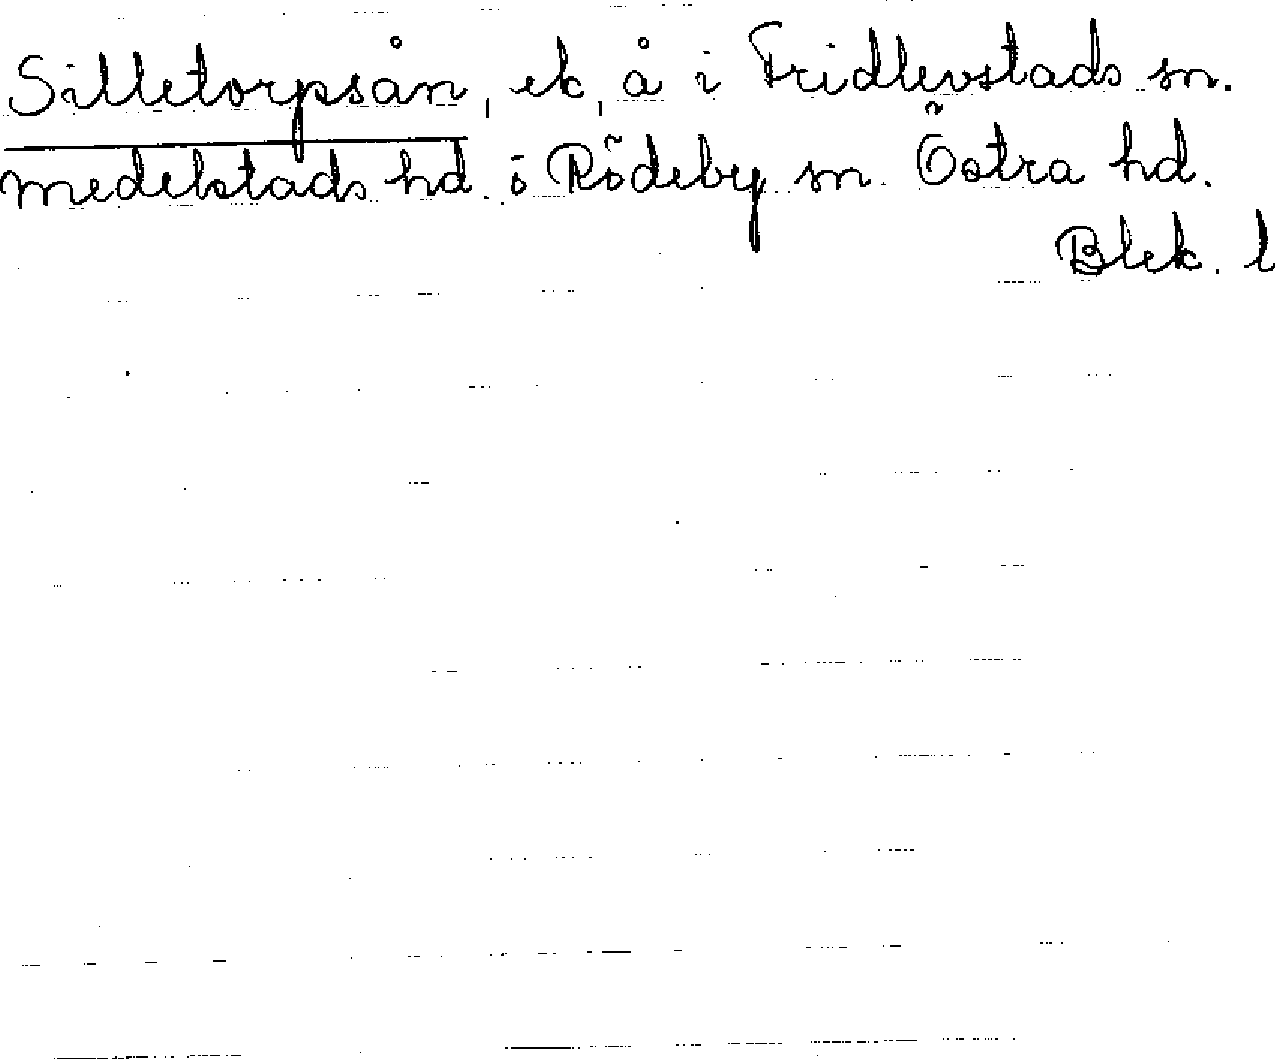 Silletorpsån, ek, å i Fridlevstads sn.
medelstads hd. ö Rödeby sn. Östra hd.
Blek. l